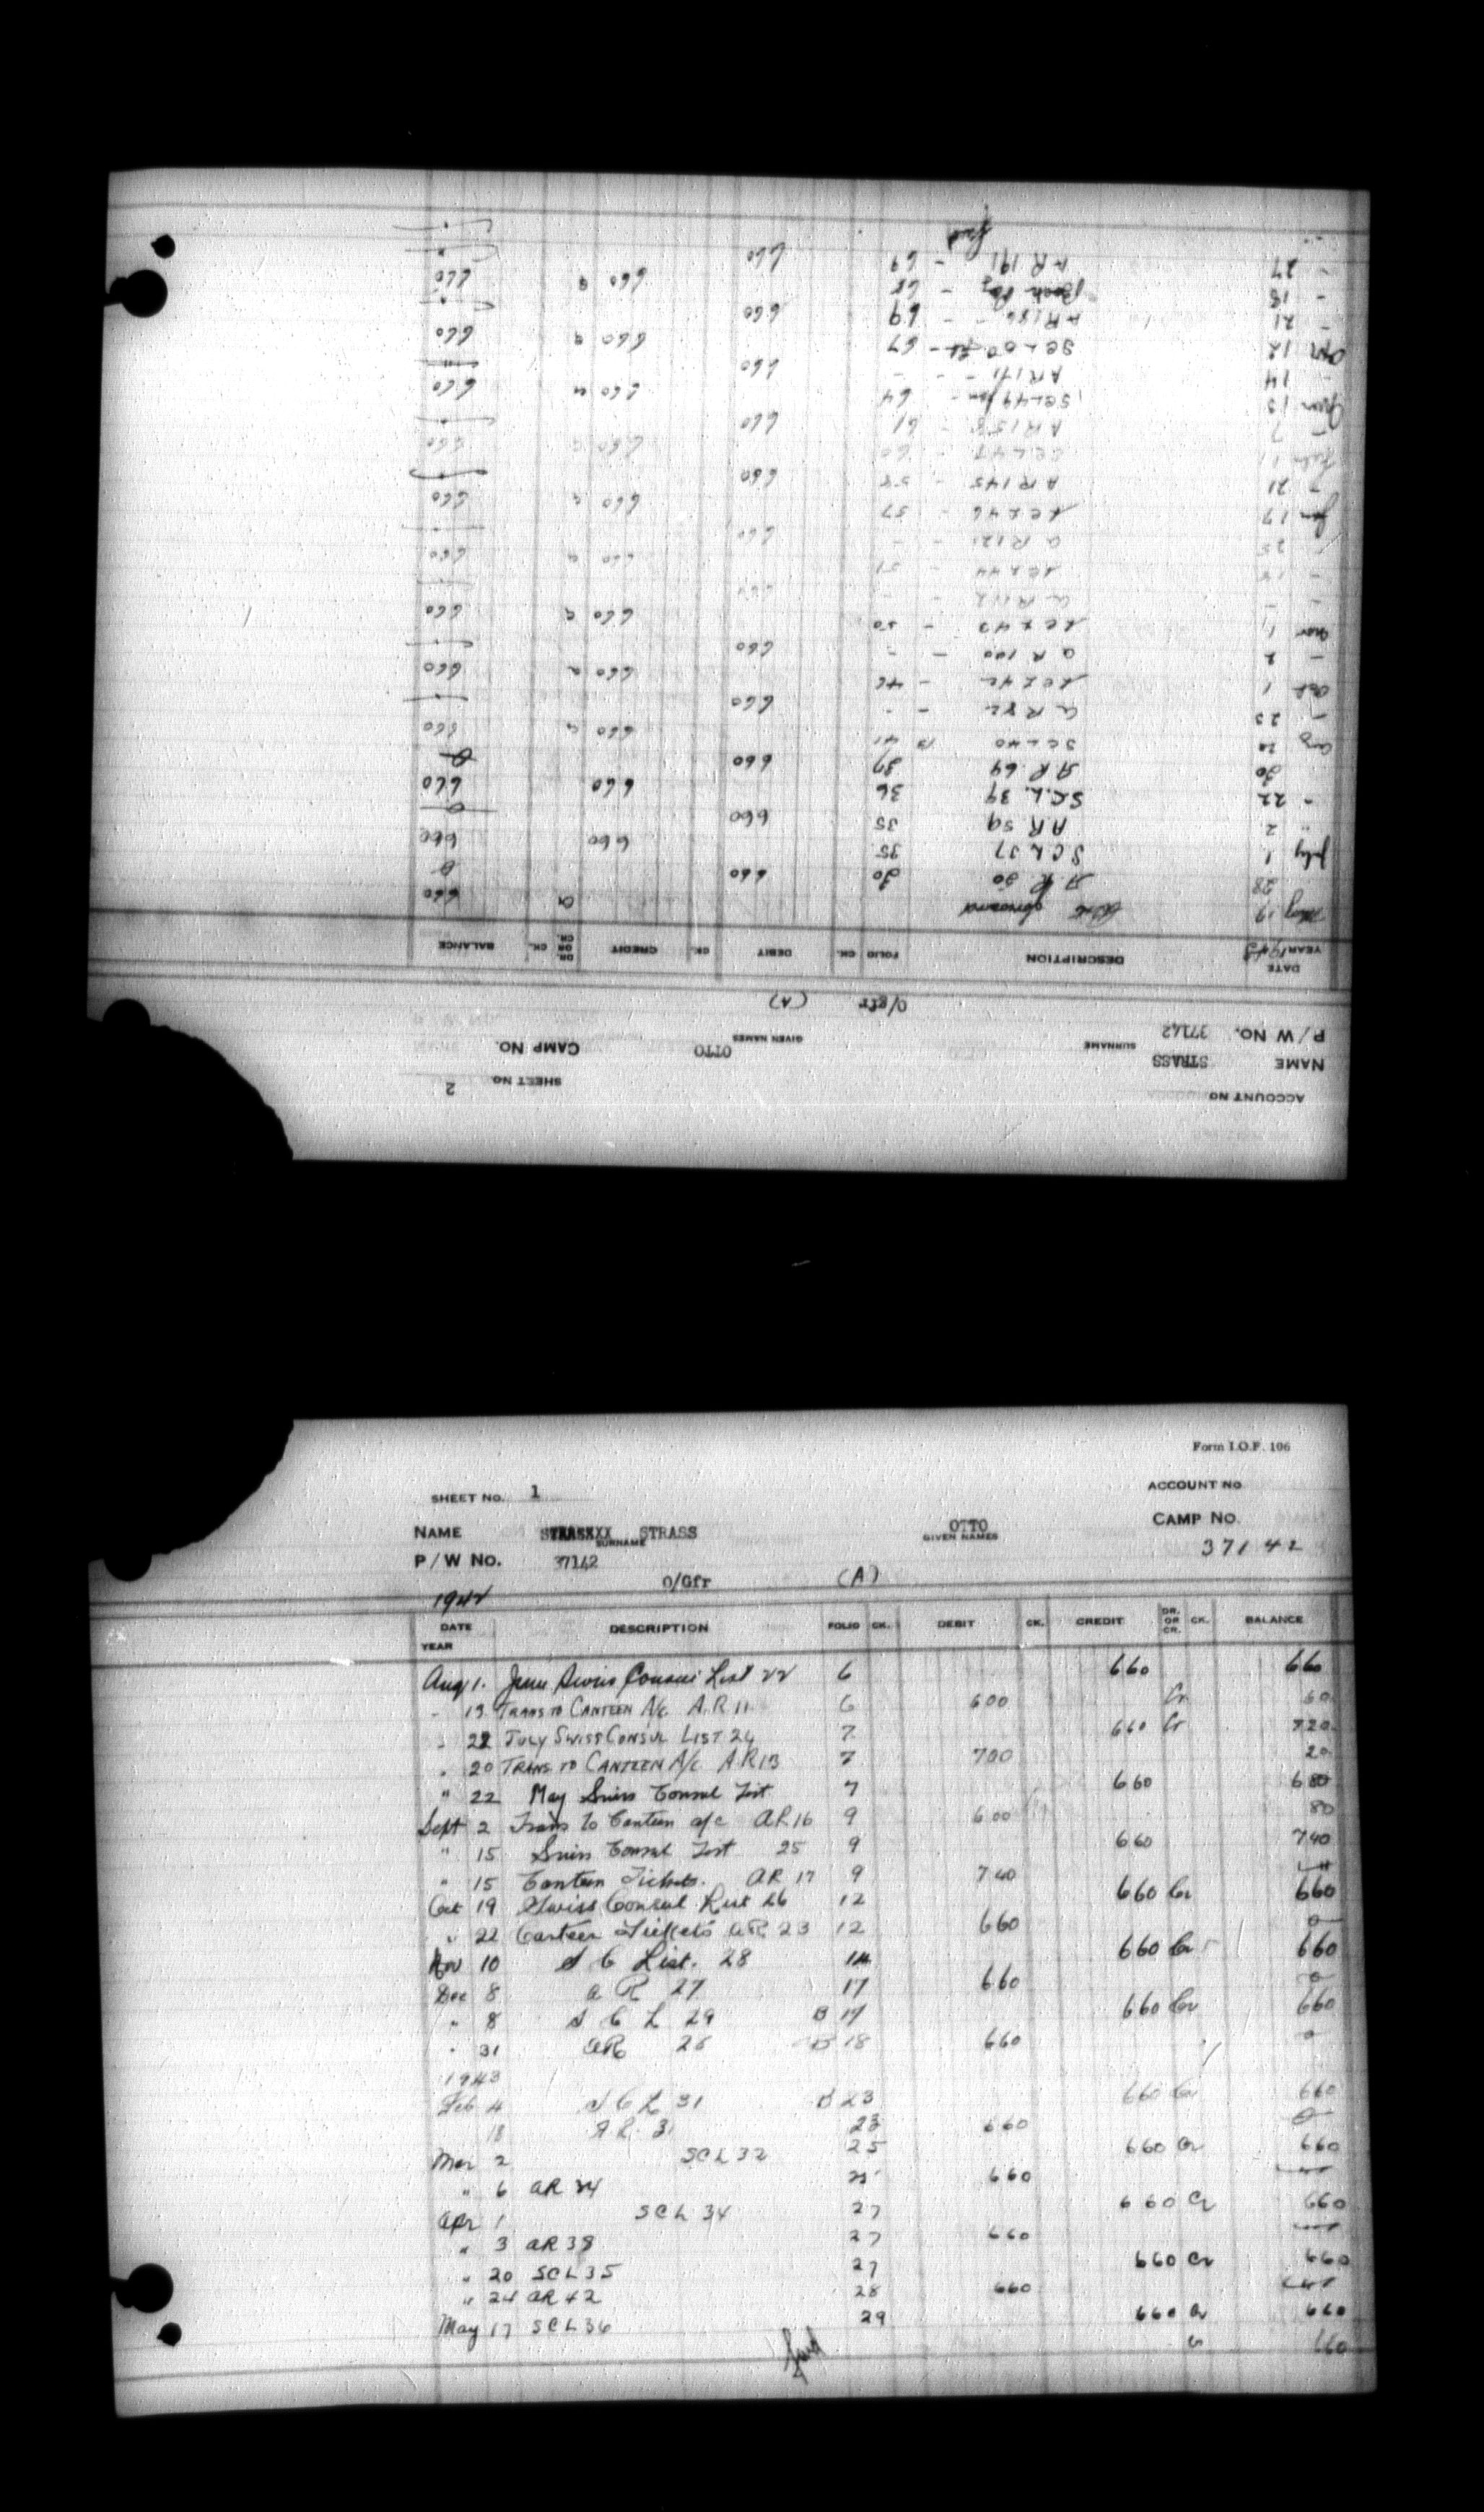 ACCOUNT NO
SHEET NO 2
NAME STRASS SURNAME OTTO GIVEN NAMES CAMP NO.
P/W NO. 37142
O/gfr (A)
DATE YEAR 1943 DESCRIPTION FOLIO CK. DEBIT CK. CREDIT DR. OR CR. CK. BALANCE
May 19 forward Cr 660
28 A.R. 50 30 660 0
July 1 SCL 37 35 660 660
" 2 AR 59 35 660 0
" 22 S.C.L. 39 36 660 660
30 A.R. 69 37 660 0
Aug 20 SCL 40 B 41 660 660
- 25 A R 82 - - 660
Oct 1 SCL 42 - 46 660 660
- 2 A R 100 - - 660
Nov 1 SCL 43 - 50 660 660
- - A R 112 - -
- 18 SCL 44 - 51 660 660
- 25 A R 121 - - 660
Jan 17 SCL 46 - 57 660 660
- 21 A R 145 - 58 660
Feb 1 SCL 48 - 60 660 660
- 7 A R 158 - 61 660
Mar 13 SCL 49 - 64 660 660
- 14 A R 171 - - 660
Apr 12 SCL 50 - 67 660 660
- 21 A R 186 - - 69 660
- 18 - 68 660 660
- 27 A R 191 - 69 660
Form I.O.F. 106
SHEET NO. 1 ACCOUNT NO
NAME STRASS SURNAME OTTO GIVEN NAMES CAMP NO.
P/W NO. 37142 37142
O/Gfr (A)
1942
DATE YEAR DESCRIPTION FOLIO CK. DEBIT CK. CREDIT DR. OR CR. CK. BALANCE
Aug 1. June Swiss Consul List 22 6 660 660
- 13 TRANS TO CANTEEN A/C. A.R 11. 6 600 Cr 60
" 22 JULY SWISS CONSUL LIST 24 7 660 Cr 720
" 20 TRANS. TO CANTEEN A/C A.R 13 7 700 20
" 22 May Swiss Consul List 7 660 680
Sept 2 Trans to Canteen a/c AR 16 9 600 80
" 15 Swiss Consul List 25 9 660 740
" 15 Canteen Tickets. AR 17 9 740
Oct 19 Swiss Consul List 26 12 660 Cr 660
" 22 Canteen Tickets AR 23 12 660 0
Nov 10 S C List. 28 14 660 Cr 660
Dec 8 A R 27 17 660 0
" 8 S C L 29 B 17 660 Cr 660
" 31 AR 28 B 18 660 0
1943
Feb 4 S C L 31 B 23 660 Cr 660
18 A R. 31 23 660 0
Mar 2 SCL 32 25 660 Cr 660
" 6 AR 34 25 660
Apr 1 SCL 34 27 660 Cr 660
" 3 AR 38 27 660
" 20 SCL 35 27 660 Cr 660
" 24 AR 42 28 660
May 17 SCL 36 29 660 Cr 660
Cr 660
fwd